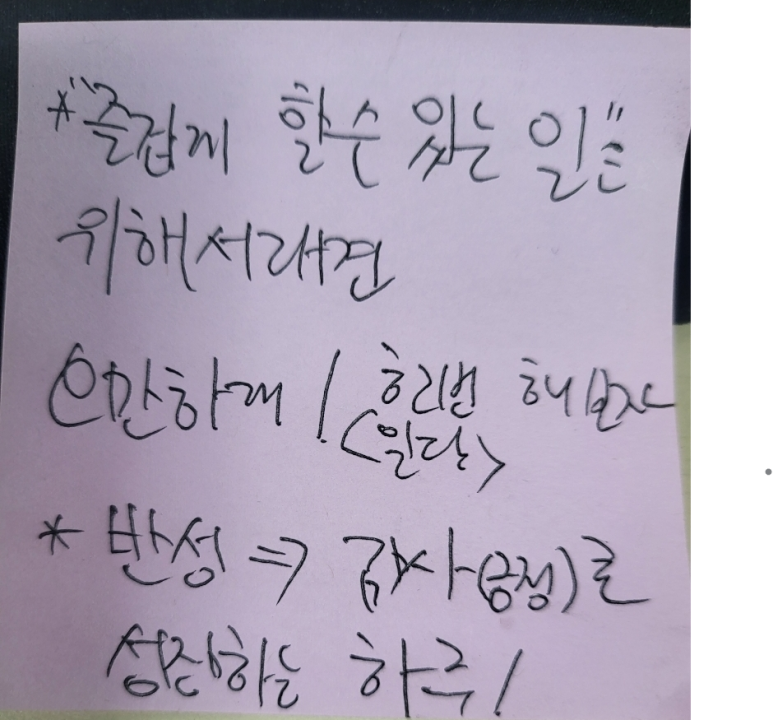 * "즐겁게 할수 있는 일"은
위해서라면
만하게! 한번 해보자
<일단>
* 반성 ⇒ 감사(긍정)로
성장하는 하루!